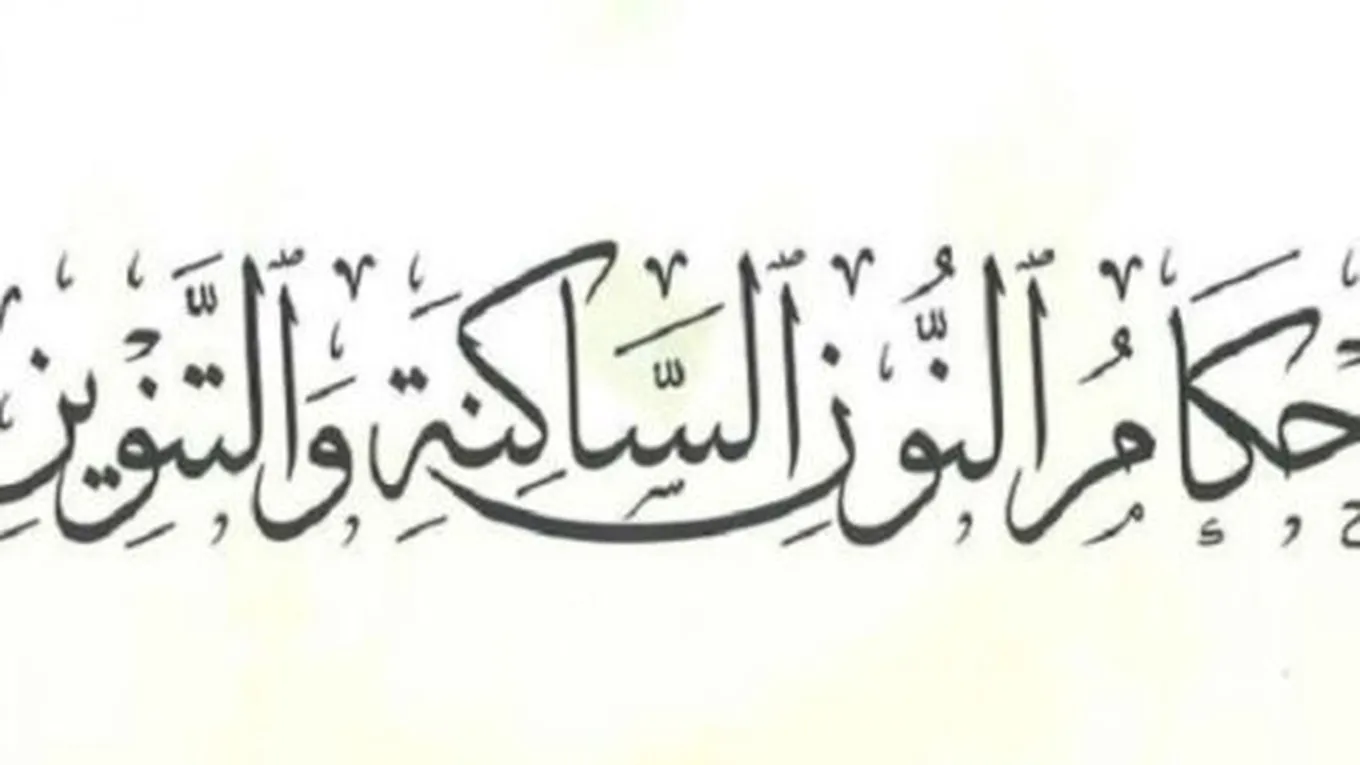 حكَامُ ٱلنُّونِ ٱلسَّاكِنَةِ وَٱلتَّنْوِينِ